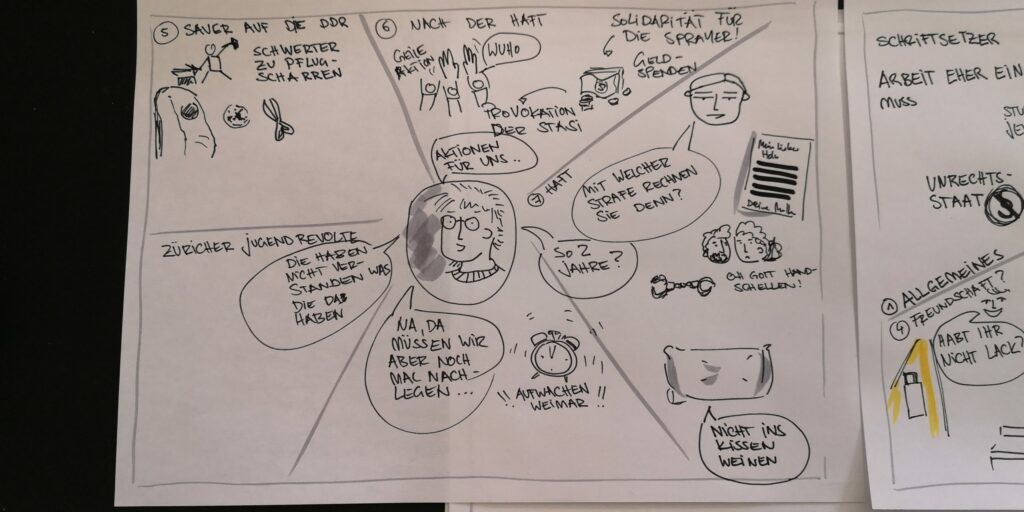 5 SAUER AUF DIE DDR
SCHWERTER
ZU PFLUG-
SCHARREN
6 NACH DER HAFT
GEILE
AKTION
WUHO
PROVOKATION
DER STASI
SOLIDARITÄT FÜR
DIE SPRAYER!
GELD-
SPENDEN
AKTIONEN
FÜR UNS..
7 HAFT
MIT WELCHER
STRAFE RECHNEN
SIE DENN?
Mein lieber
Deine
SO 2
JAHRE?
OH GOTT HAND-
SCHELLEN!
NICHT INS
KISSEN
WEINEN
ZÜRICHER JUGENDREVOLTE
DIE HABEN
NICHT VER-
STANDEN WAS
DIE DA
HABEN
NA, DA
MÜSSEN WIR
ABER NOCH
MAL NACH-
LEGEN ...
!! AUFWACHEN
WEIMAR !!
SCHRIFTSETZER
ARBEIT EHER EIN
MUSS
UNRECHTS-
STAAT
1 ALLGEMEINES
4 FREUNDSCHAFT?
HABT IHR
NICHT LACK?